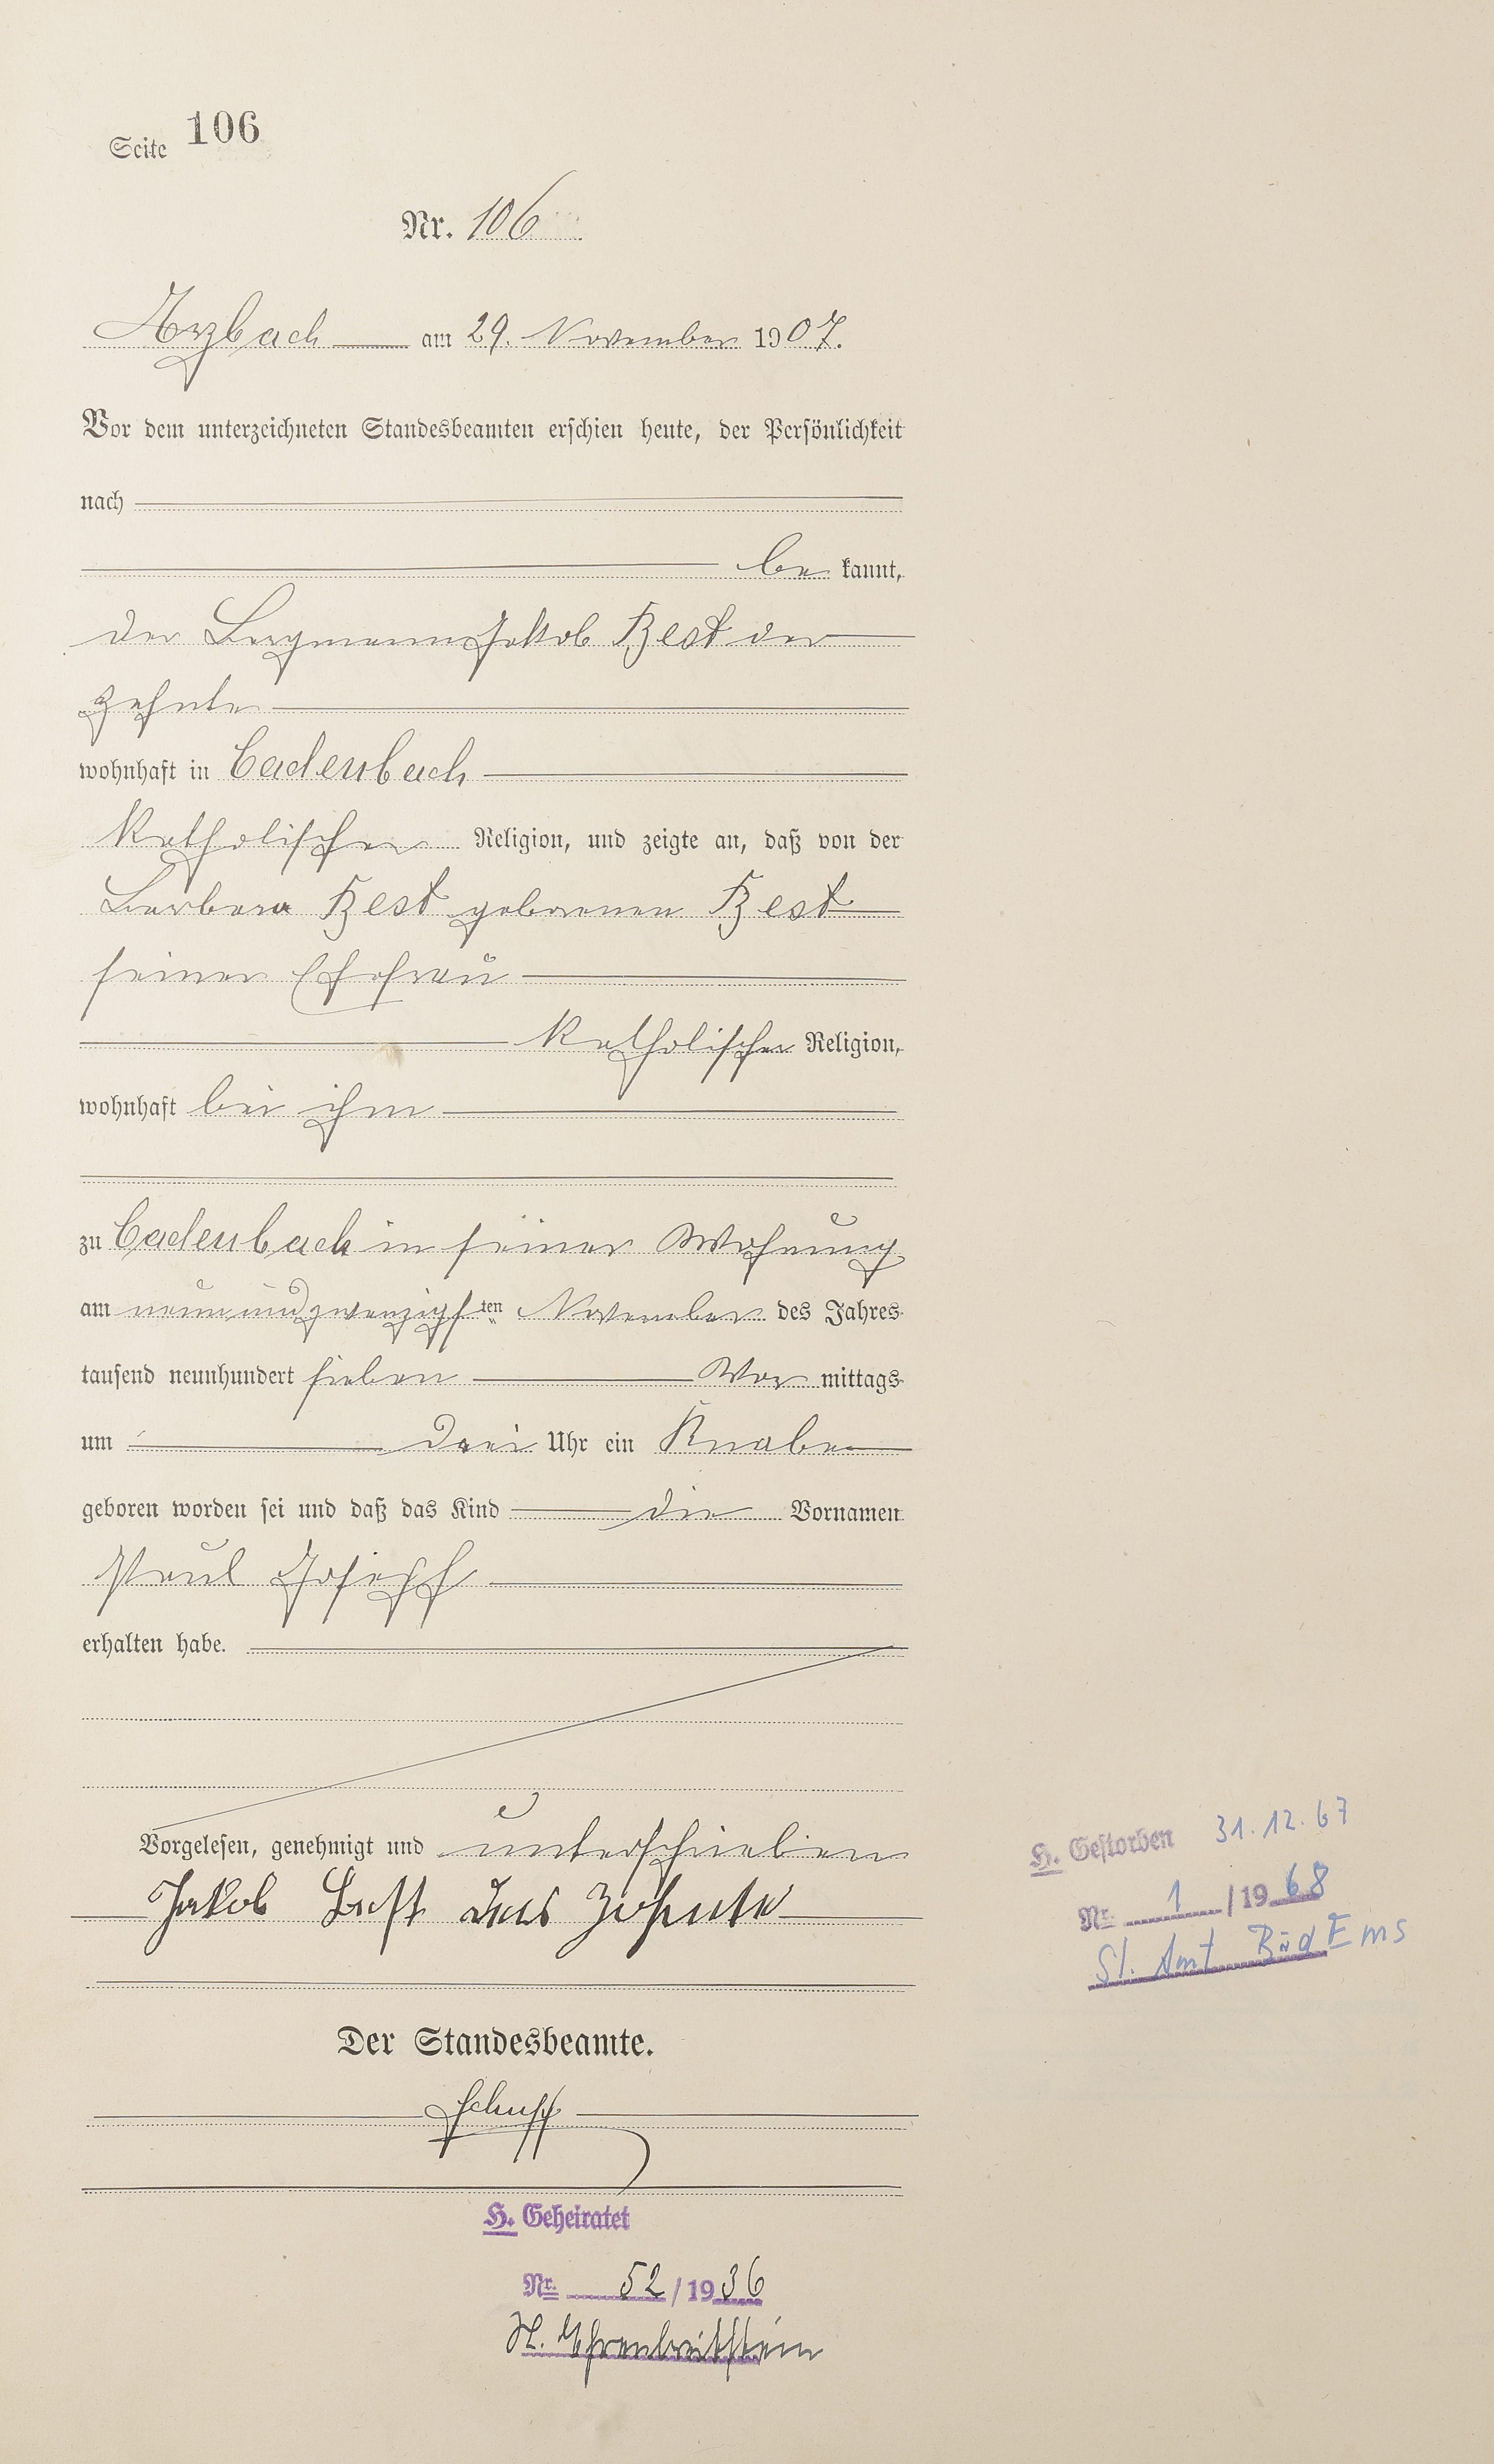 Seite 106
Nr. 106
Arzbach am 29. November 1907.
Vor dem unterzeichneten Standesbeamten erschien heute, der Persönlichkeit
nach
be kannt,
der Bergmann Jakob Best der
zehnte
wohnhaft in Cadenbach
katholischer Religion, und zeigte an, daß von der
Barbara Best geborenen Best
seiner Ehefrau
katholischer Religion,
wohnhaft bei ihm
zu Cadenbach in seiner Wohnung
am neunundzwanzigsten November des Jahres
tausend neunhundert sieben Vor mittags
um drei Uhr ein Knabe
geboren worden sei und daß das Kind die Vornamen
Paul Joseph
erhalten habe.
Vorgelesen, genehmigt und unterschrieben
Jakob Best der Zehnte
Der Standesbeamte.
H. Geheiratet
Nr. 52/1936
St. Ehrenbreitstein
H. Gestorben 31.12.67
Nr. 1/1968
St. Amt Bad Ems